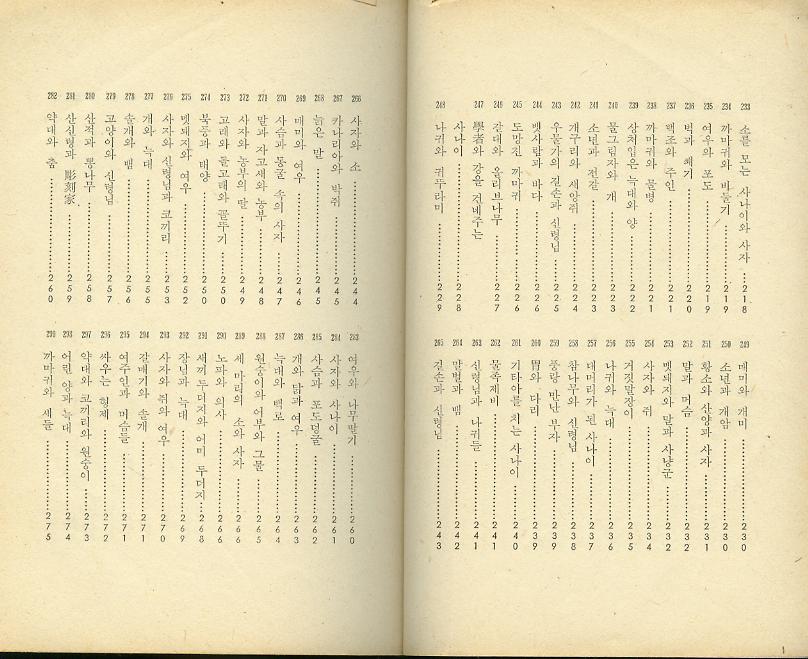 233 소를 모는 사나이와 사자 ……218
234 까마귀와 비둘기 ……219
235 여우와 포도 ……219
236 벽과 쐐기 ……220
237 백조와 주인 ……221
238 까마귀와 물병 ……221
239 상처입은 늑대와 양 ……222
240 물그림자와 개 ……223
241 소년과 전갈 ……223
242 개구리와 새앙쥐 ……224
243 우물가의 길손과 신령님 ……225
244 뱃사람과 바다 ……226
245 도망친 까마귀 ……226
246 갈대와 올리브나무 ……227
247 學者와 강을 건네주는
사나이 ……228
248 나귀와 귀뚜라미 ……229
249 매미와 개미 ……230
250 소년과 개암 ……230
251 황소와 산양과 사자 ……231
252 말과 머슴 ……232
253 멧돼지와 말과 사냥군 ……232
254 사자와 쥐 ……234
255 거짓말장이 ……235
256 나귀와 늑대 ……236
257 대머리가 된 사나이 ……237
258 참나무와 신령님 ……238
259 풍랑 만난 부자 ……239
260 胃와 다리 ……239
261 기타아를 치는 사나이 ……240
262 물족제비 ……241
263 신령님과 나귀들 ……241
264 말벌과 뱀 ……242
265 길손과 신령님 ……243
266 사자와 소 ……244
267 카나리아와 박쥐 ……245
268 늙은 말 ……245
269 매미와 여우 ……246
270 사슴과 동굴 속의 사자 ……247
271 말과 자고새와 농부 ……248
272 사자와 농부의 딸 ……249
273 고래와 돌고래와 꼴뚜기 ……250
274 북풍과 태양 ……250
275 멧돼지와 여우 ……252
276 사자와 신령님과 코끼리 ……253
277 개와 늑대 ……255
278 솔개와 뱀 ……256
279 고양이와 신령님 ……257
280 산적과 뽕나무 ……258
281 산신령과 彫刻家 ……259
282 약대와 춤 ……260
283 여우와 나무딸기 ……260
284 사자와 사나이 ……261
285 사슴과 포도덩굴 ……262
286 개와 닭과 여우 ……263
287 늑대와 백로 ……264
288 원숭이와 어부와 그물 ……265
289 세 마리의 소와 사자 ……266
290 노파와 의사 ……266
291 새끼 두더지와 어미 두더지 ……268
292 장님과 늑대 ……269
293 사자와 쥐와 여우 ……270
294 갈매기와 솔개 ……271
295 여주인과 머슴들 ……271
296 싸우는 형제 ……272
297 약대와 코끼리와 원숭이 ……273
298 어린 양과 늑대 ……274
299 까마귀와 새들 ……275